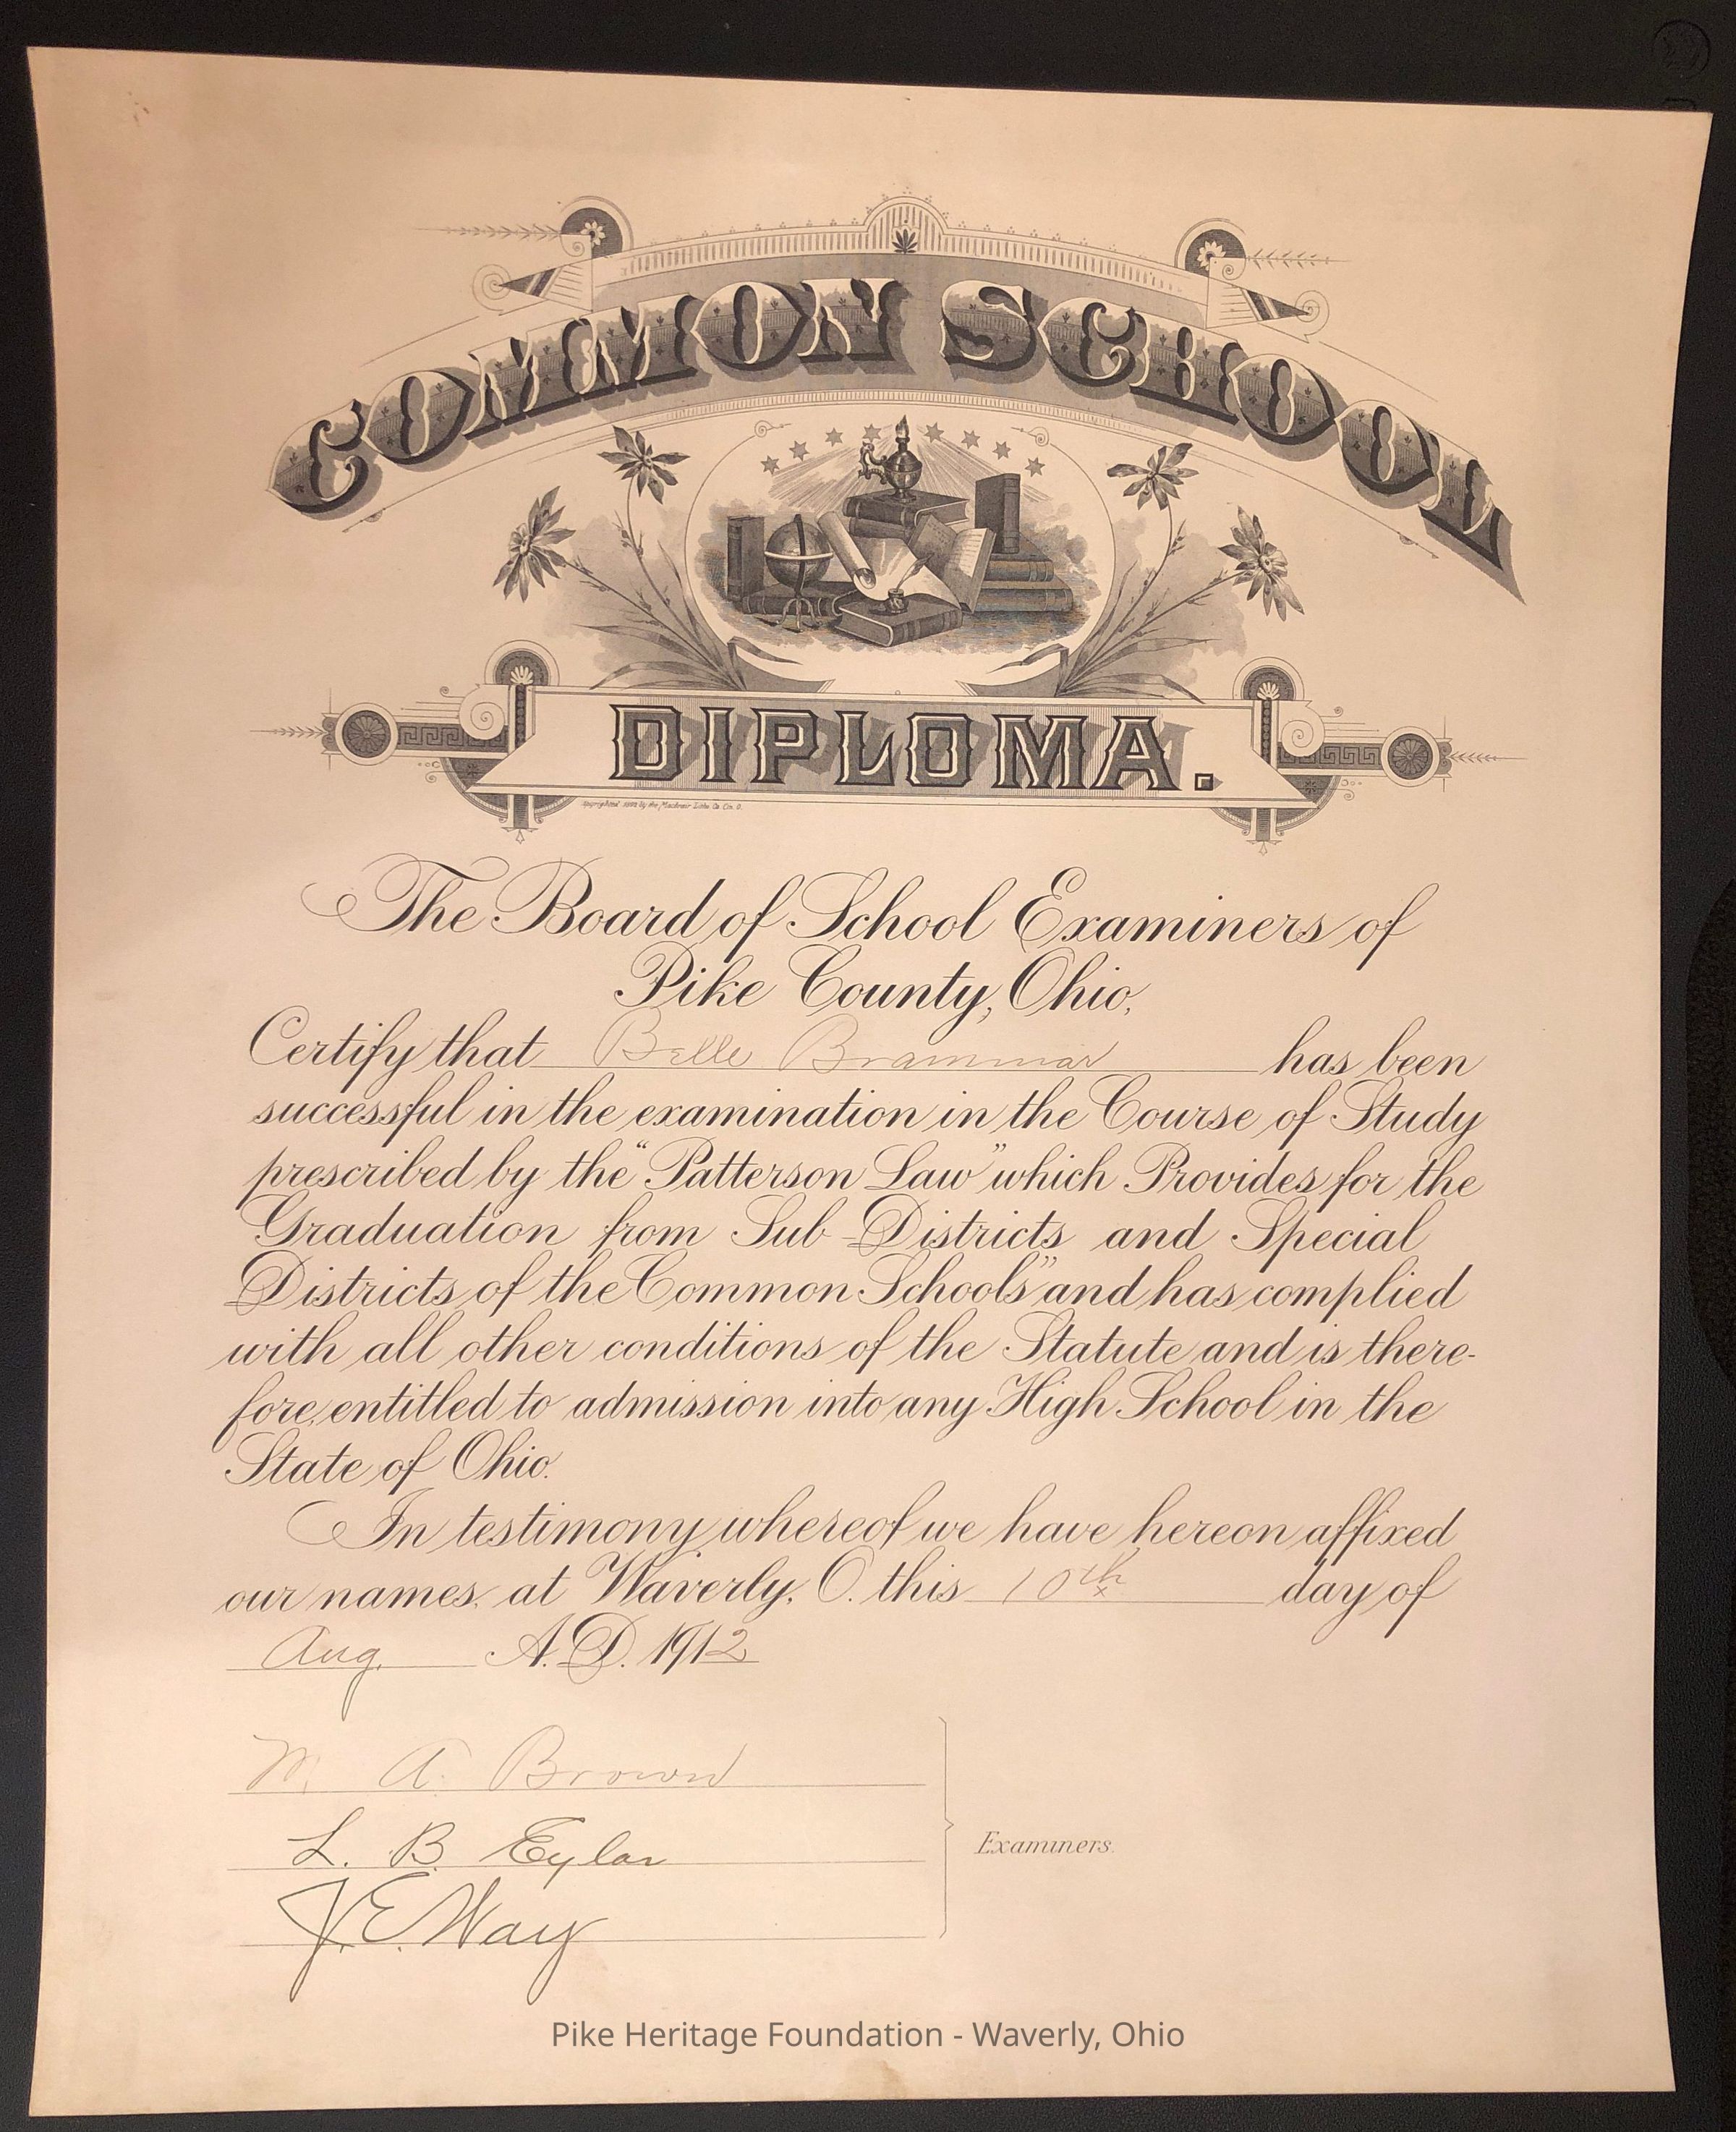 COMMON SCHOOL
DIPLOMA.
by the Macbrair Litho. Co. Cin. O.
The Board of School Examiners of
Pike County, Ohio,
Certify that Belle Brammar has been
successful in the examination in the Course of Study
prescribed by the "Patterson Law" which Provides for the
Graduation from Sub-Districts and Special
Districts of the Common Schools" and has complied
with all other conditions of the Statute and is there-
fore, entitled to admission into any High School in the
State of Ohio.
In testimony whereof we have hereon affixed
our names, at Waverly, O. this 10th day of
Aug. A.D. 1912
M. A. Brown
L. B. Eylar
J. E. Way
Examiners.
Pike Heritage Foundation - Waverly, Ohio